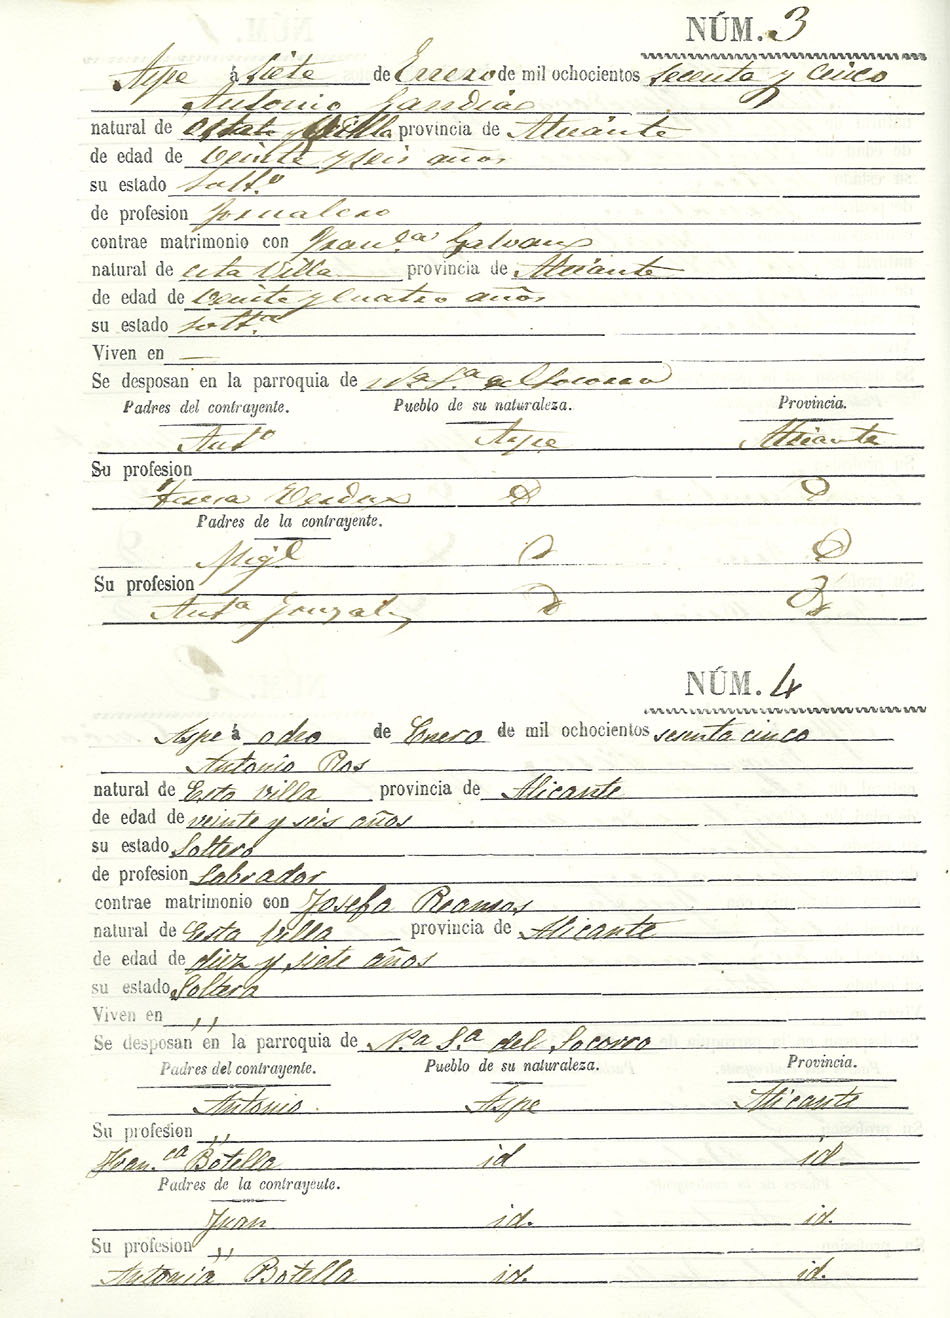 NÚM. 3
Aspe á Siete de Enero de mil ochocientos secenta y cinco
Antonio Gandia
natural de esta Villa provincia de Alicante
de edad de veinte y seis años
su estado solt.º
de profesion Jornalero
contrae matrimonio con Fran.ca Galvañ
natural de esta Villa provincia de Alicante
de edad de veinte y cuatro años
su estado solt.ª
Viven en —
Se desposan en la parroquia de N.ª S.ª del Socorro
Padres del contrayente. Pueblo de su naturaleza. Provincia.
Ant.º Aspe Alicante
Su profesion
Teresa Verdu
Padres de la contrayente.
Migl
Su profesion
Ant.ª Gonzal
NÚM. 4
Aspe á ocho de Enero de mil ochocientos sesenta cinco
Antonio Ros
natural de Esta villa provincia de Alicante
de edad de veinte y seis años
su estado Soltero
de profesion Labrador
contrae matrimonio con Josefa Reamos
natural de Esta villa provincia de Alicante
de edad de diez y siete años
su estado Soltera
Viven en ,,
Se desposan en la parroquia de N.ª S.ª del Socorro
Padres del contrayente. Pueblo de su naturaleza. Provincia.
Antonio. Aspe Alicante
Su profesion ,,
Fran.ca Botella id id
Padres de la contrayente.
Juan id. id.
Su profesion ,,
Antonia Botella id. id.